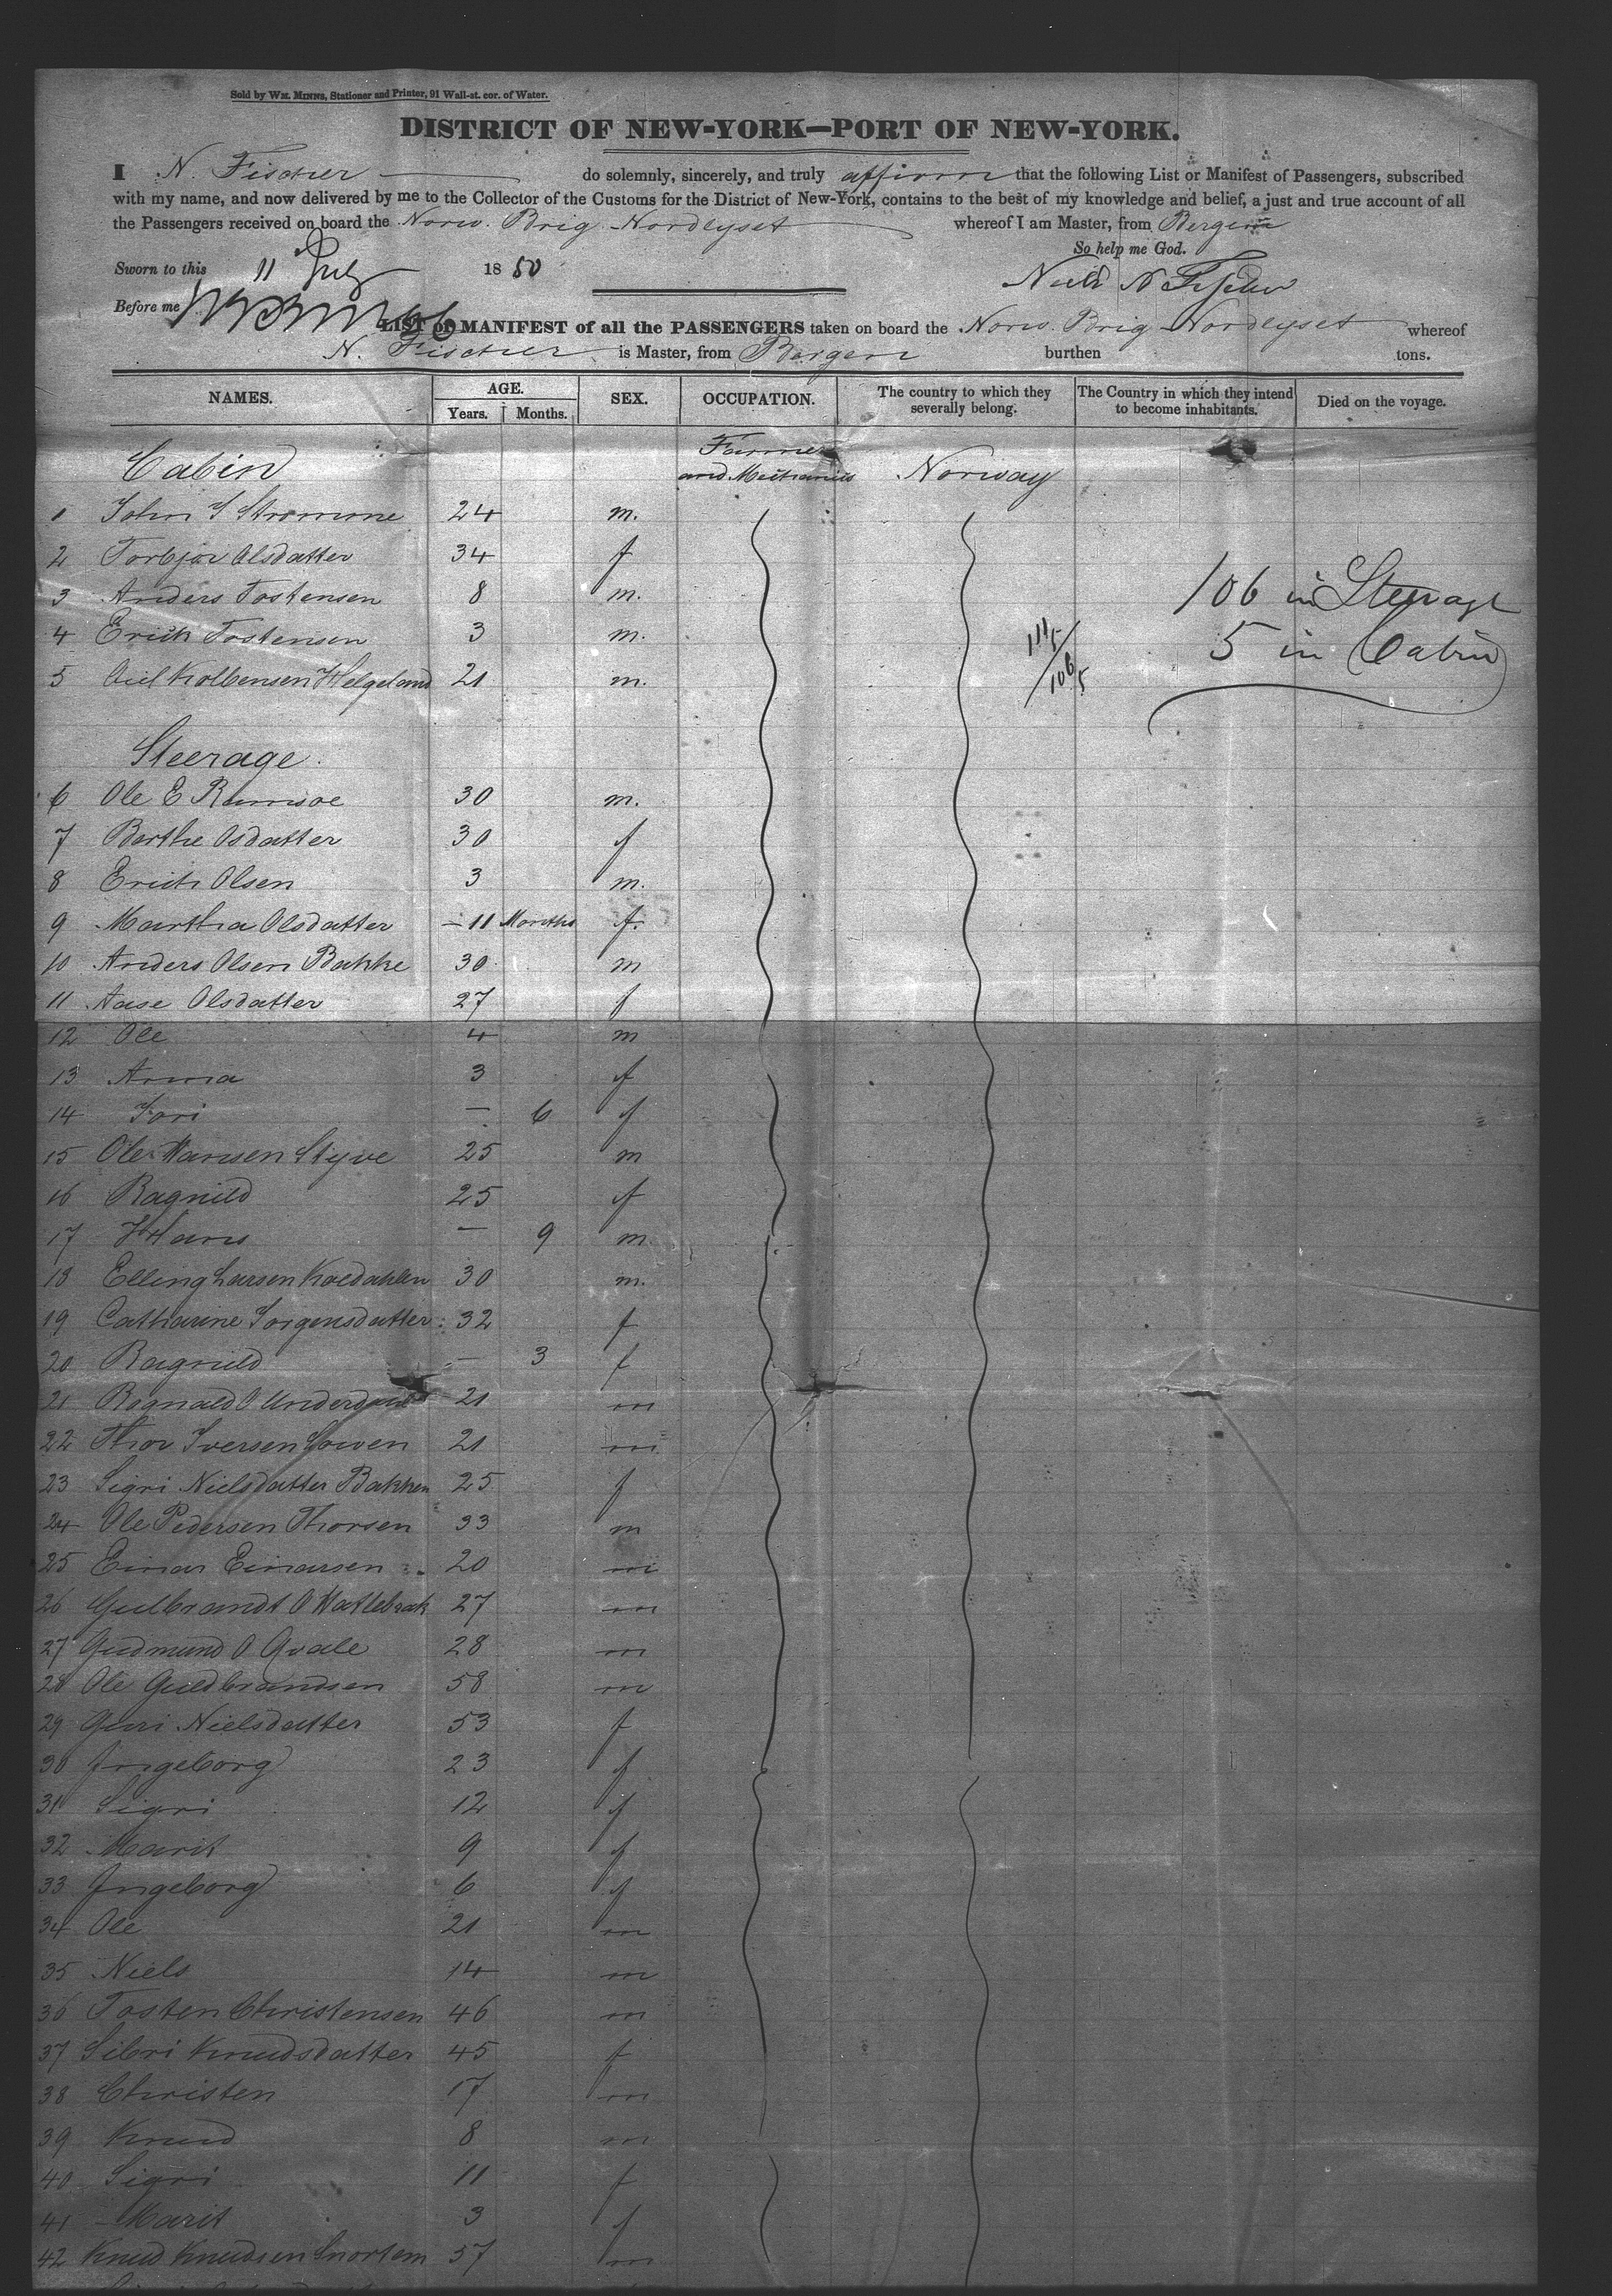 Sold by WM. MINNS, Stationer and Printer, 91 Wall-st. cor. of Water.
DISTRICT OF NEW-YORK—PORT OF NEW-YORK.
I N. Fischer do solemnly, sincerely, and truly affirm that the following List or Manifest of Passengers, subscribed
with my name, and now delivered by me to the Collector of the Customs for the District of New-York, contains to the best of my knowledge and belief, a just and true account of all
the Passengers received on board the Norw. Brig Nordlyset whereof I am Master, from Bergen
So help me God.
Sworn to this 11 July 1850
Before me
LIST or MANIFEST of all the PASSENGERS taken on board the Norw. Brig Nordlyset whereof
N. Fischer is Master, from Bergen burthen tons.
NAMES. AGE. Years. Months. SEX. OCCUPATION. The country to which they severally belong. The Country in which they intend to become inhabitants. Died on the voyage.
Cabin Farmers and Mechanics Norway
1 John S Stromme 24 m.
2 Torbjor Olsdatter 34 f
3 Anders Tostensen 8 m.
4 Erick Tostensen 3 m.
5 Kolbensen Helgeland 21 m.
106 in Steerage
5 in Cabin
111/
106/5
Steerage
6 Ole E 30 m.
7 Berthe Osdatter 30 f
8 Erich Olsen 3 m.
9 Martha Olsdatter — 11 Months f.
10 Anders Olsen Bakke 30 m
11 Aase Olsdatter 27 f
12 Ole 4 m
13 Anna 3 f
14 — 6 f
15 Ole Hansen Styve 25 m
16 Ragnild 25 f
17 Hans — 9 m
18 Elling Larsen 30 m.
19 Catharine Jorgensdatter 32 f
20 Ragnild — 3 f
21 Rognald O 21 m
22 Thor Iversen 21 m
23 Sigri Nielsdatter Bakken 25 f
24 Ole Pedersen Thorsen 33 m
25 Einar Einarsen 20 m
26 Gulbrandt O 27 m
27 Gudmund O Qvale 28 m
28 Ole Guldbrandsen 58 m
29 Guri Nielsdatter 53 f
30 Ingeborg 23 f
31 Sigri 12 f
32 Marit 9 f
33 Ingeborg 6 f
34 Ole 21 m
35 Niels 14 m
36 Tosten Christensen 46 m
37 Sibri Knudsdatter 45 f
38 Christen 17 m
39 Knud 8 m
40 Sigri 11 f
41 Marit 3 f
42 Knud Knudsen 57 m